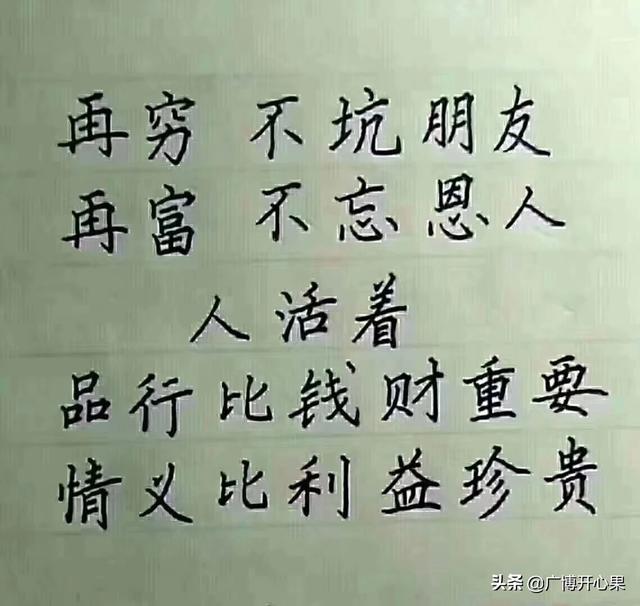 再穷 不坑朋友
再富 不忘恩人
人活着
品行比钱财重要
情义比利益珍贵
头条 @广博开心果